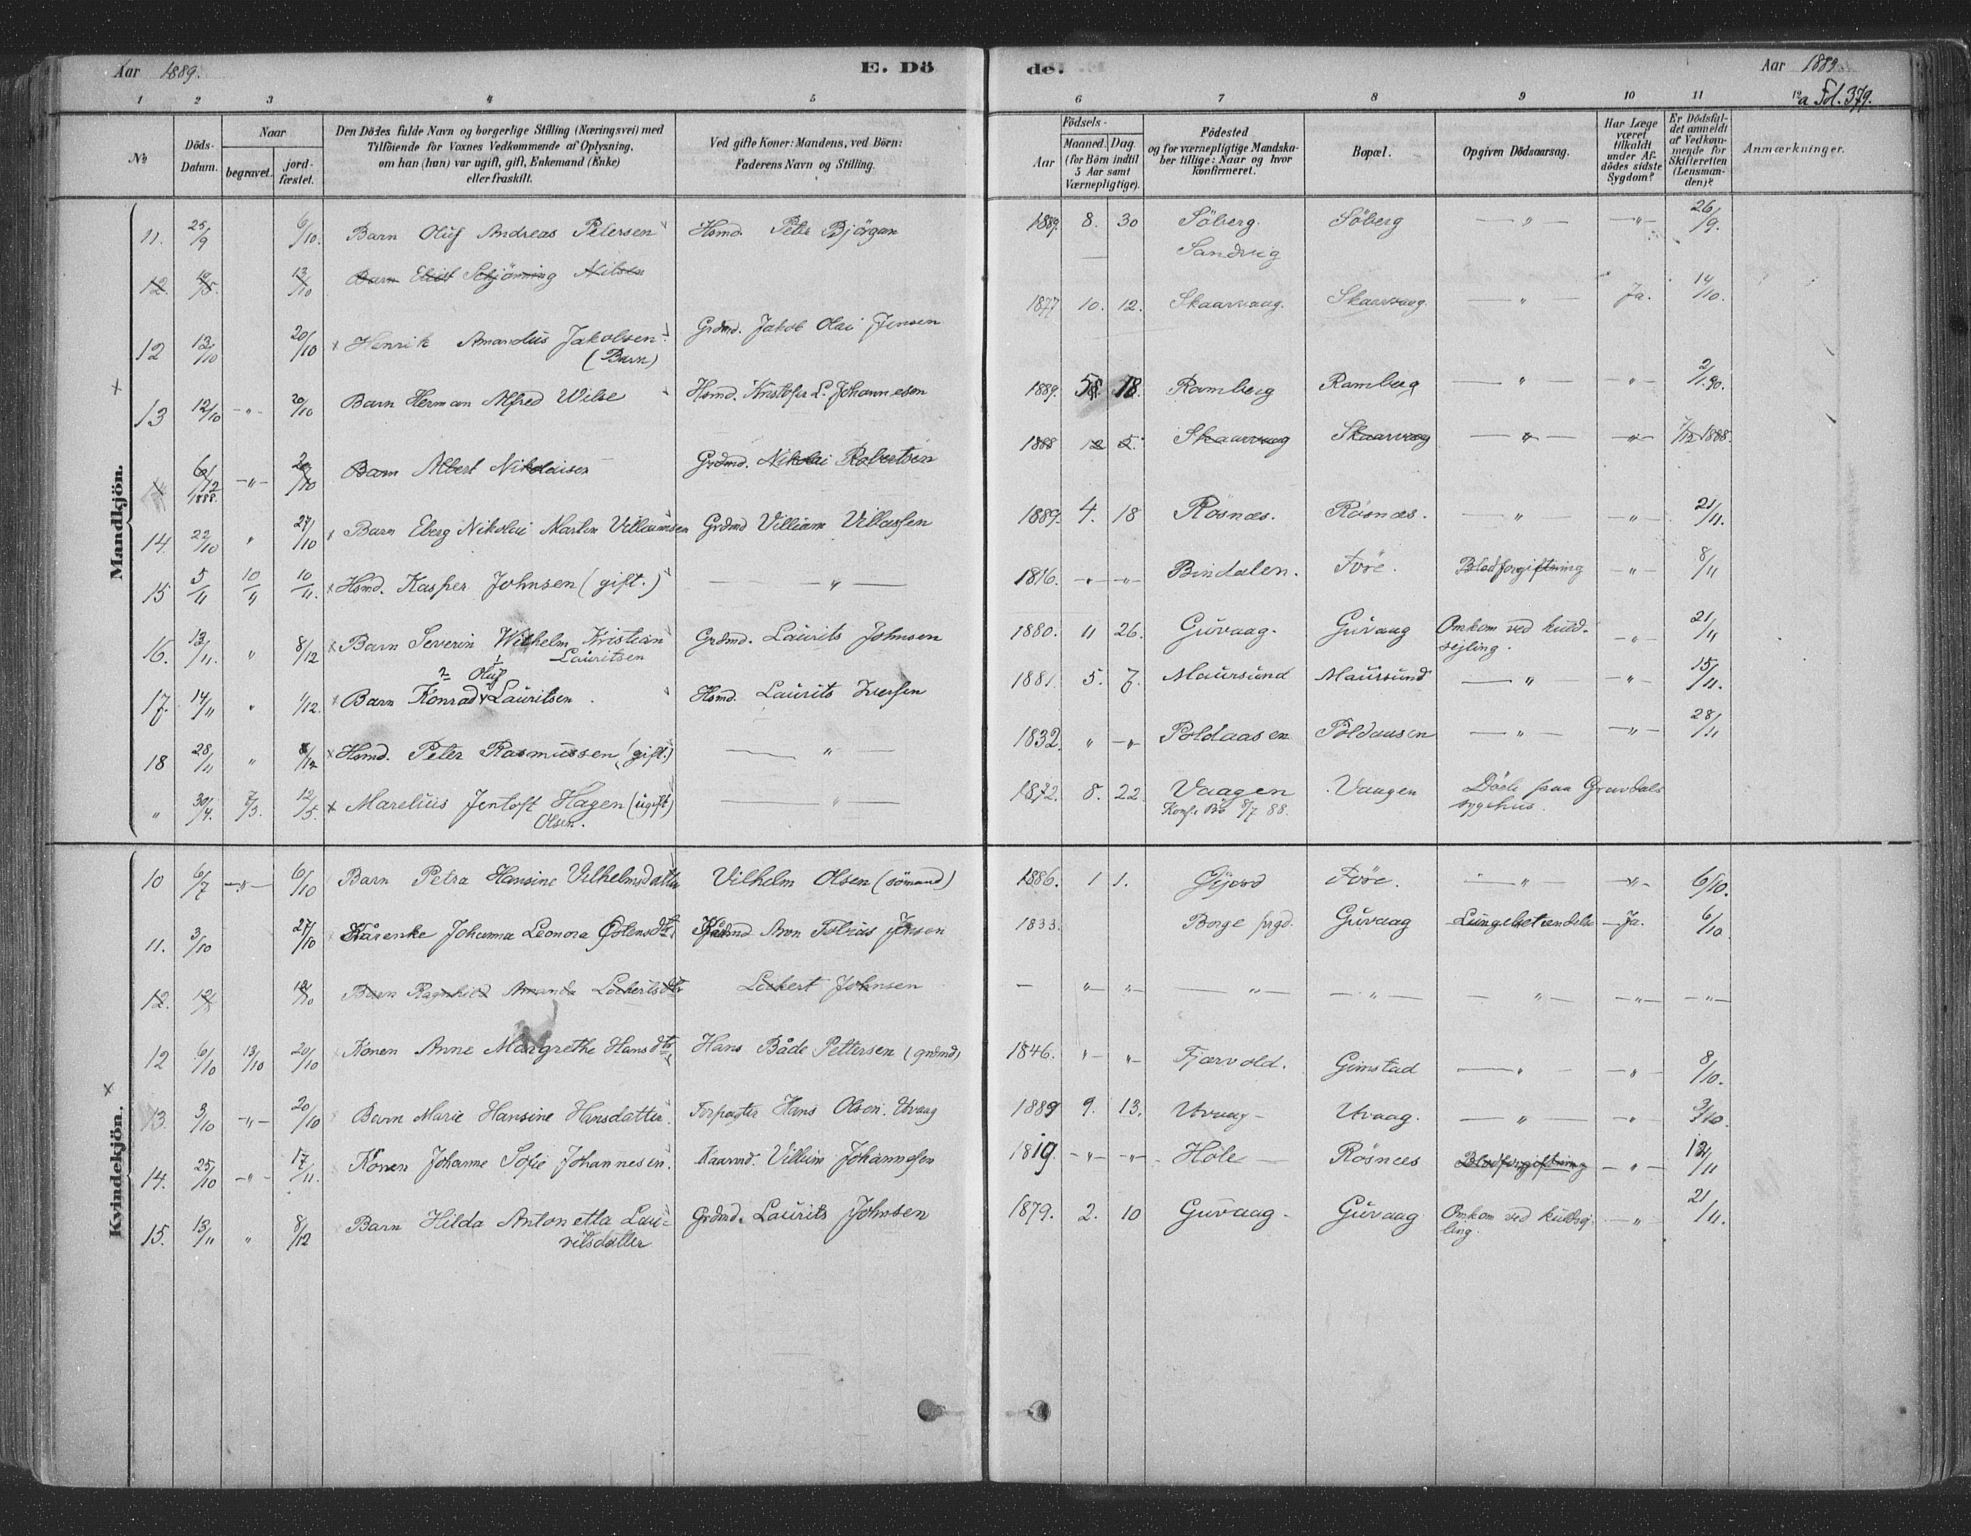 Aar 1889. E. Dö de. Aar 1889
1 2 3 4 5 6 7 8 9 10 11 12
a Fol. 379.
No
Döds-Datum.
Naar
begravet.
jord-fæstet.
Den Dödes fulde Navn og borgerlige Stilling (Næringsvei) med
Tilföiende for Voxnes Vedkommende af Oplysning,
om han (hun) var ugift, gift, Enkemand (Enke)
eller fraskilt.
Ved gifte Koner: Mandens, ved Börn:
Faderens Navn og Stilling.
Födsels-
Aar
Maaned. Dag.
(for Börn indtil
5 Aar samt
Værnepligtige).
Födested
og for værnepligtige Mandska-
ber tillige: Naar og hvor
konfirmeret.
Bopæl.
Opgiven Dödsaarsag.
Har Læge
været
tilkaldt
under Af-
dödes sidste
Sygdom?
Er Dödsfal-
det anmeldt
af Vedkom-
mende for
Skifteretten
(Lensman-
den)?
Anmærkninger.
Mandkjön.
11. 25/9 6/10. Barn Oluf Andreas Petersen Hsmd. Peter Bjørgan 1889. 8. 30 Söberg. Söberg — " — — " — 26/9.
Sandvig
12. 13/10 Barn Schjönning Nilsen
12 13/10 20/10 Henrik Amandus Jakobsen Grdmd. Jakob Olai Jensen 1877 10. 12. Skaarvaag. Skaarvaag. — " — Ja. 14/10.
(Barn)
13 12/10 — " — 20/10 Barn Herman Alfred Wilse Hsmd. Kristofer L. Johannesen 1889. 18. Ramberg Ramberg — " — — " — 2/1.90.
6/12 1888. — " — Barn Albert Nikolaisen Grdmd. Nikolai Robertsen 1888 12 5. Skaarvaag Skaarvaag — " — — " — 7/12 1888.
14. 22/10 " 27/10 Barn Eberg Nikolai Martin Villiamsen Grdmd Villiam Villassen 1889. 4. 18 Rösnæs. Rösnæs. — " — — " — 21/11.
15 5/11 10/11 10/11. Hsmd. Kasper Johnsen (gift.) — " — 1816. — " — — " — Bindalen. Före. Blodforgiftning — " — 8/11
16. 13/11. " 8/12 Barn Severin Wilhelm Kristian Grdmd. Laurits Johnsen 1880. 11 26. Guvaag. Guvaag Omkom ved kuld- — " — 21/11
Lauritsen sejling.
Oluf
17. 14/11 " 1/12. Barn Konrad Lauritsen. Hsmd. Laurits Iversen 1881. 5. 7. Maursund Maursund — " — — " — 15/11.
18 28/11 " 8/12 Hsmd. Peter Rasmussen (gift.) — " — 1832. " — " — Poldaasen Poldaasen — " — — " — 28/11
" 30/4. 7/3. 12/5. Marelius Jentoft Hagen (ugift) — " — 1872. 8. 22. Vaagen Vaagen Döde paa Gravdals
Olsen. Konf. Bö 8/7 88. sygehus.
Kvindekjön.
10 6/7 — " — 6/10 Barn Petra Hansine Vilhelmsdatter Vilhelm Olsen (sömand) 1886. 1 1. Gjerd Före. — " — — " — 6/10.
11. 3/10 27/10 Johanna Leonora Aron Tobias Jensen 1833. Borge prgd. Guvaag Lungebetændelse Ja. 6/10
12. 12/10 Barn Ragnhild Amanda Lockertsdtr Lockert Johnsen — " " — " — — " — — " — — " — — " —
12 6/10 13/10 20/10 Konen Anne Margrethe Hansdtr Hans Både Pettersen (grdmd) 1846. " — " Fjærvold. Gimstad — " — — " — 8/10.
13. 3/10 — " — 20/10 Barn Marie Hansine Hansdatter. Forpagter Hans Olsen. Utvaag 1889 9. 13. Utvaag — Utvaag. — " — — " — 3/10.
14. 25/10 — " — 17/11. Konen Johanne Sofie Johannesen. Kaarmd. Villum Johannesen 1819. — " — — " — Hole — Rösnæs Blodforgiftning — " — 12/11
15. 13/11 " 8/12 Barn Hilda Antonetta Lau- Grdmd. Laurits Johnsen 1879. 2. 10 Guvaag. Guvaag Omkom ved kuldsej- — " — 21/11.
ritsdatter ling.